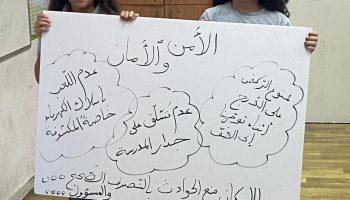 الأمن
والأمان
ممنوع التركض
على الدرج
أثناء
إلى الصف
عدم تسلق على
جدار المدرسة
عدم اللعب
بأسلاك الكهرباء
خاصة المكشوفة
منع الحوادث بالتصرف الصحيح
والمسؤول